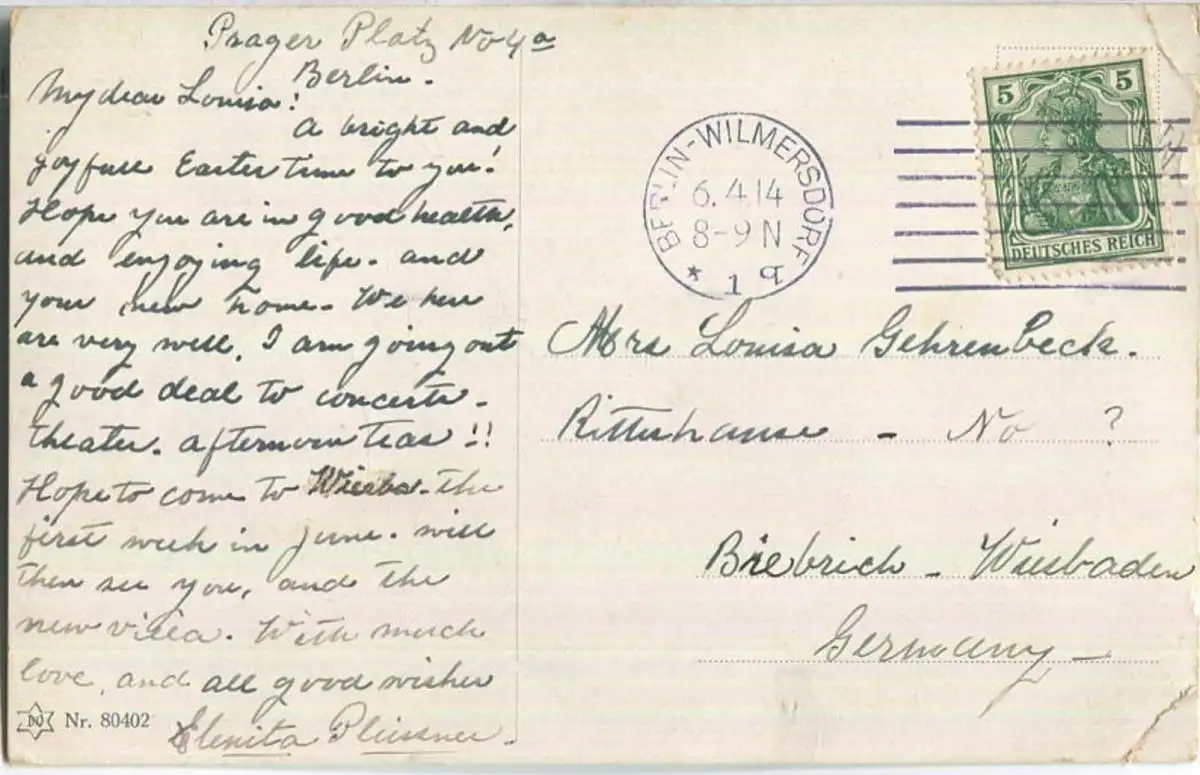 Prager Platz No 4a
Berlin.
My dear Louisa!
A bright and
joyfull Easter time to you!
Hope you are in good health,
and enjoying life. and
your new home. We here
are very well, I am going out
a good deal to concerts.
theater. afternoon teas!!
Hope to come to Wiesba. the
first week in June. will
then see you, and the
new villa. With much
love, and all good wishes
Elenita
Nr. 80402
BERLIN-WILMERSDORF
6.4.14
8-9 N
* 1 q
5 5
DEUTSCHES REICH
Mrs Louisa Gehrenbeck.
Ritterhause - No ?
Biebrich - Wiesbaden
Germany -